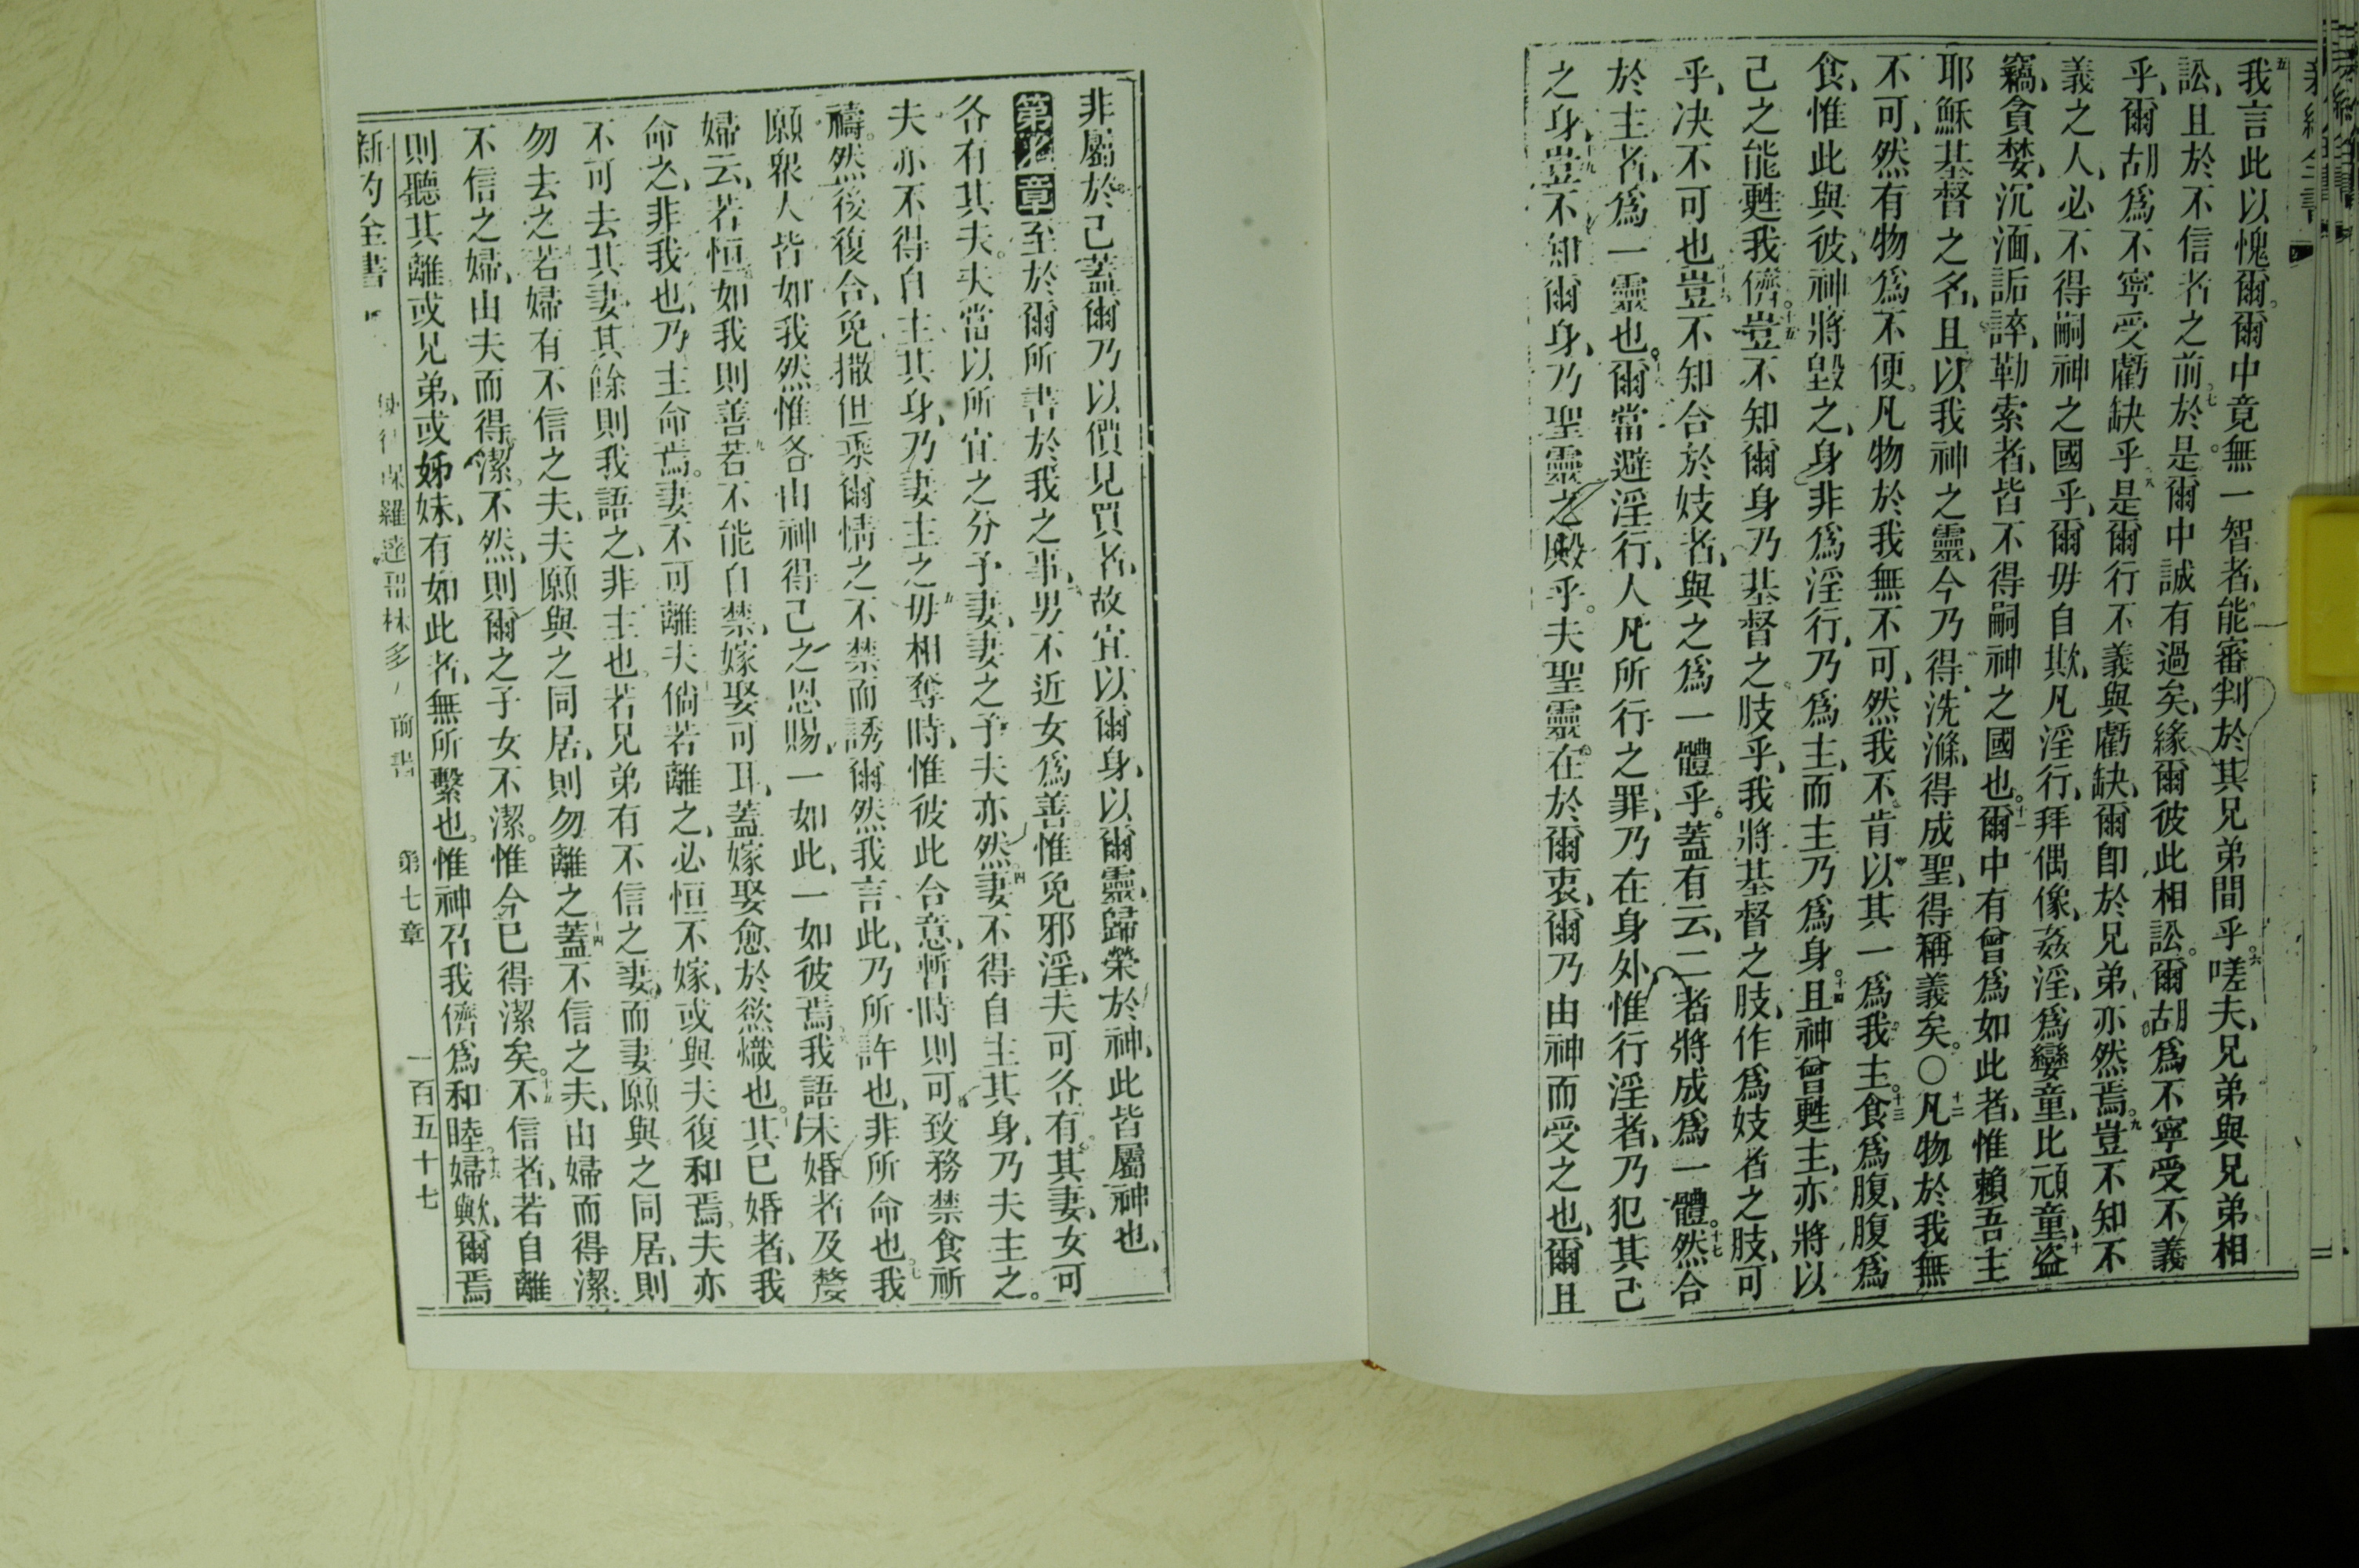 我言此以愧爾。爾中竟無一智者、能審判於其兄弟間乎。六嗟夫、兄弟與兄弟相
訟、且於不信者之前。七於是爾中誠有過矣、緣爾彼此相訟。爾胡爲不寧受不義
乎、爾胡爲不寧受虧缺乎。八是爾行不義與虧缺、爾卽於兄弟亦然焉。九豈不知不
義之人、必不得嗣神之國乎、爾毋自欺、凡淫行、拜偶像、姦淫、爲孌童、比頑童、十盜
竊、貪婪、沉湎、詬誶、勒索者、皆不得嗣神之國也。十一爾中有曾爲如此者、惟賴吾主
耶穌基督之名、且以我神之靈、今乃得洗滌、得成聖、得稱義矣。〇十二凡物於我無
不可、然有物爲不便。凡物於我無不可、然我不肯以其一爲我主。十三食爲腹、腹爲
食、惟此與彼、神將毀之、身非爲淫行、乃爲主、而主乃爲身。十四且神曾甦主、亦將以
己之能甦我儕。十五豈不知爾身乃基督之肢乎、我將基督之肢、作爲妓者之肢、可
乎、决不可也。十六豈不知合於妓者、與之爲一體乎。蓋有云、二者將成爲一體。十七然合
於主者、爲一靈也。十八爾當避淫行、人凡所行之罪、乃在身外、惟行淫者、乃犯其己
之身、十九豈不知爾身、乃聖靈之殿乎。夫聖靈在於爾衷、爾乃由神而受之也、爾且
非屬於己、蓋爾乃以價見買者、故宜以爾身、以爾靈、歸榮於神、此皆屬神也、
第七章至於爾所書於我之事、男不近女爲善。惟免邪淫、夫可各有其妻、女可
各有其夫。夫當以所宜之分予妻、妻之予夫亦然。四妻不得自主其身、乃夫主之。
夫亦不得自主其身、乃妻主之。五毋相奪時、惟彼此合意、暫時則可、致務禁食祈
禱。然後復合、免撒但乘爾情之不禁而誘爾。然我言此、乃所許也、非所命也。七我
願衆人皆如我然。惟各由神得己之恩賜、一如此、一如彼焉。我語未婚者及嫠
婦云、若恒如我則善。九若不能自禁、嫁娶可耳、蓋嫁娶愈於慾熾也。其已婚者、我
命之、非我也、乃主命焉。妻不可離夫、倘若離之、必恒不嫁、或與夫復和焉。夫亦
不可去其妻、其餘則我語之、非主也。若兄弟有不信之妻、而妻願與之同居、則
勿去之、若婦有不信之夫、夫願與之同居、則勿離之。十四蓋不信之夫、由婦而得潔、
不信之婦、由夫而得潔。不然、則爾之子女不潔。惟今已得潔矣。十五不信者、若自離
則聽其離、或兄弟、或姊妹、有如此者、無所繫也。惟神召我儕爲和睦。十六婦歟、爾焉
新約全書 使徒保羅達哥林多前書 第七章 一百五十七